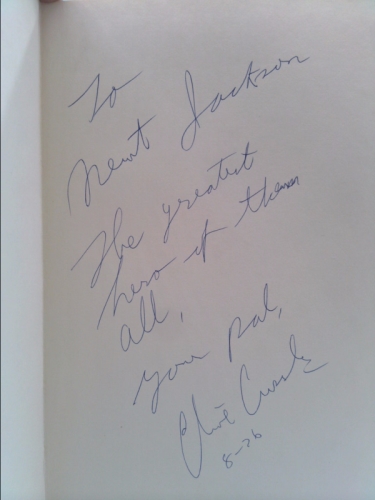 To
Newt Jackson
The greatest
hero of them
all,
your pal,
Clive Cussler
8-26